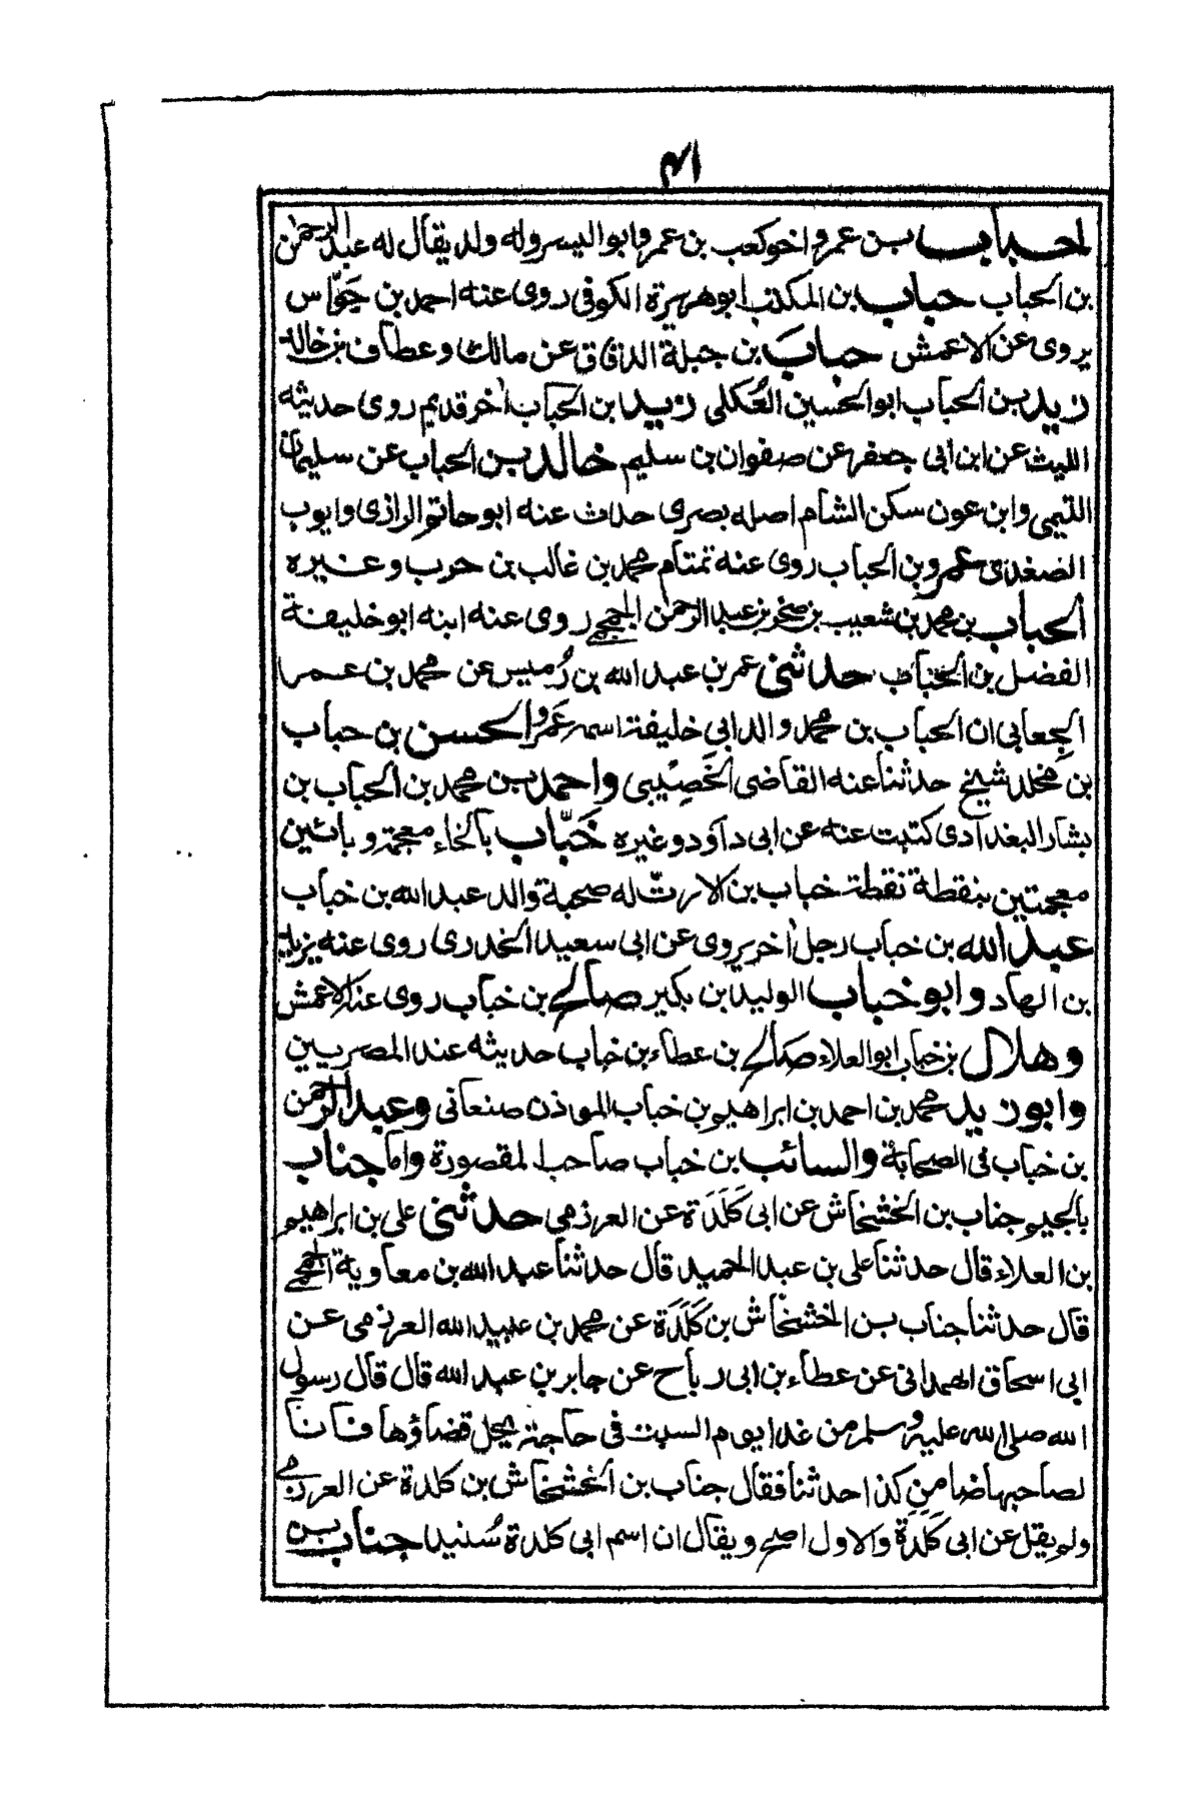 ٤١
الحباب بن عمرو اخو كعب بن عمرو ابو اليسر وله ولد يقال له عبد الرحمن
بن الحباب حباب بن المكتب ابو هريرة الكوفى روى عنه احمد بن جَوّاس
يروى عن الاعمش حبابَ بن جبلة الدقاق عن مالك وعطاف بن خالد
زيد بن الحباب ابو الحسين العُكلى زيد ابن الحباب اخر قديم روى حديثه
الليث عن ابن ابى جعفر عن صفوان بن سليم خالد بن الحباب عن سليمان
التيمى وابن عون سكن الشام اصله بصرى حدث عنه ابو حاتم الرازى وايوب
الصغدى عمرو بن الحباب روى عنه تمتام محمد بن غالب بن حرب وغيره
الحباب بن محمد بن شعيب بن صخر بن عبد الرحمن الجمحى روى عنه ابنه ابو خليفة
الفضل بن الحباب حدثنى عمر بن عبد الله بن رُميس عن محمد بن عمر
الجِعابى ان الحباب بن محمد والد ابى خليفة اسمه عَمرو الحسن بن حباب
بن مخلد شيخ حدثنا عنه القاضى الخَصِيبى واحمد بن محمد بن الحباب بن
بشار البغدادى كتبت عنه عن ابى داود وغيره خَبّاب بالخاء معجمة وبائين
معجمتين بنقطة نقطة خباب بن الارتّ له صحبة والد عبد الله بن خباب
عبد الله بن خباب رجل اخر يروى عن ابى سعيد الخدرى روى عنه يزيد
بن الهاد وابو خباب الوليد بن بكير صالح بن خباب روى عنه الاعمش
وهلال بن خباب ابو العلاء صالح بن عطاء بن خباب حديثه عند المصريين
وابو زيد محمد بن احمد بن ابراهيم بن خباب الموذن صنعانى وعبد الرحمن
بن خباب فى الصحابة والسائب بن خباب صاحب المقصورة واما جناب
بالجيم جناب بن الخشخاش عن ابى كَلَدَة عن العرزمى حدثنى على بن ابراهيم
بن العلاء قال حدثنا على بن عبد الحميد قال حدثنا عبد الله بن معاوية الجمحى
قال حدثنا جناب بن الخشخاش بن كَلَدَة عن محمد بن عبيد الله العرزمى عن
ابى اسحاق الهمدانى عن عطاء بن ابى رباح عن جابر بن عبد الله قال قال رسول
الله صلى الله عليه وسلم من غدا يوم السبت فى حاجة يحل قضاؤها فانا
لصاحبها ضامن كذا حدثنا فقال جناب بن الخشخاش بن كلدة عن العرزمى
ولم يقل عن ابى كَلَدَة والاول اصح ويقال ان اسم ابى كلدة سُنيد جناب بن